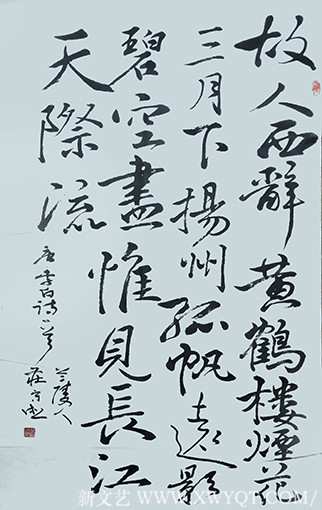 故人西辭黄鶴樓煙花
三月下揚州孤帆遠影
碧空盡惟見長江
天際流
唐李白詩一首
兰陵人
莊
新文艺 WWW.XWYQT.COM/